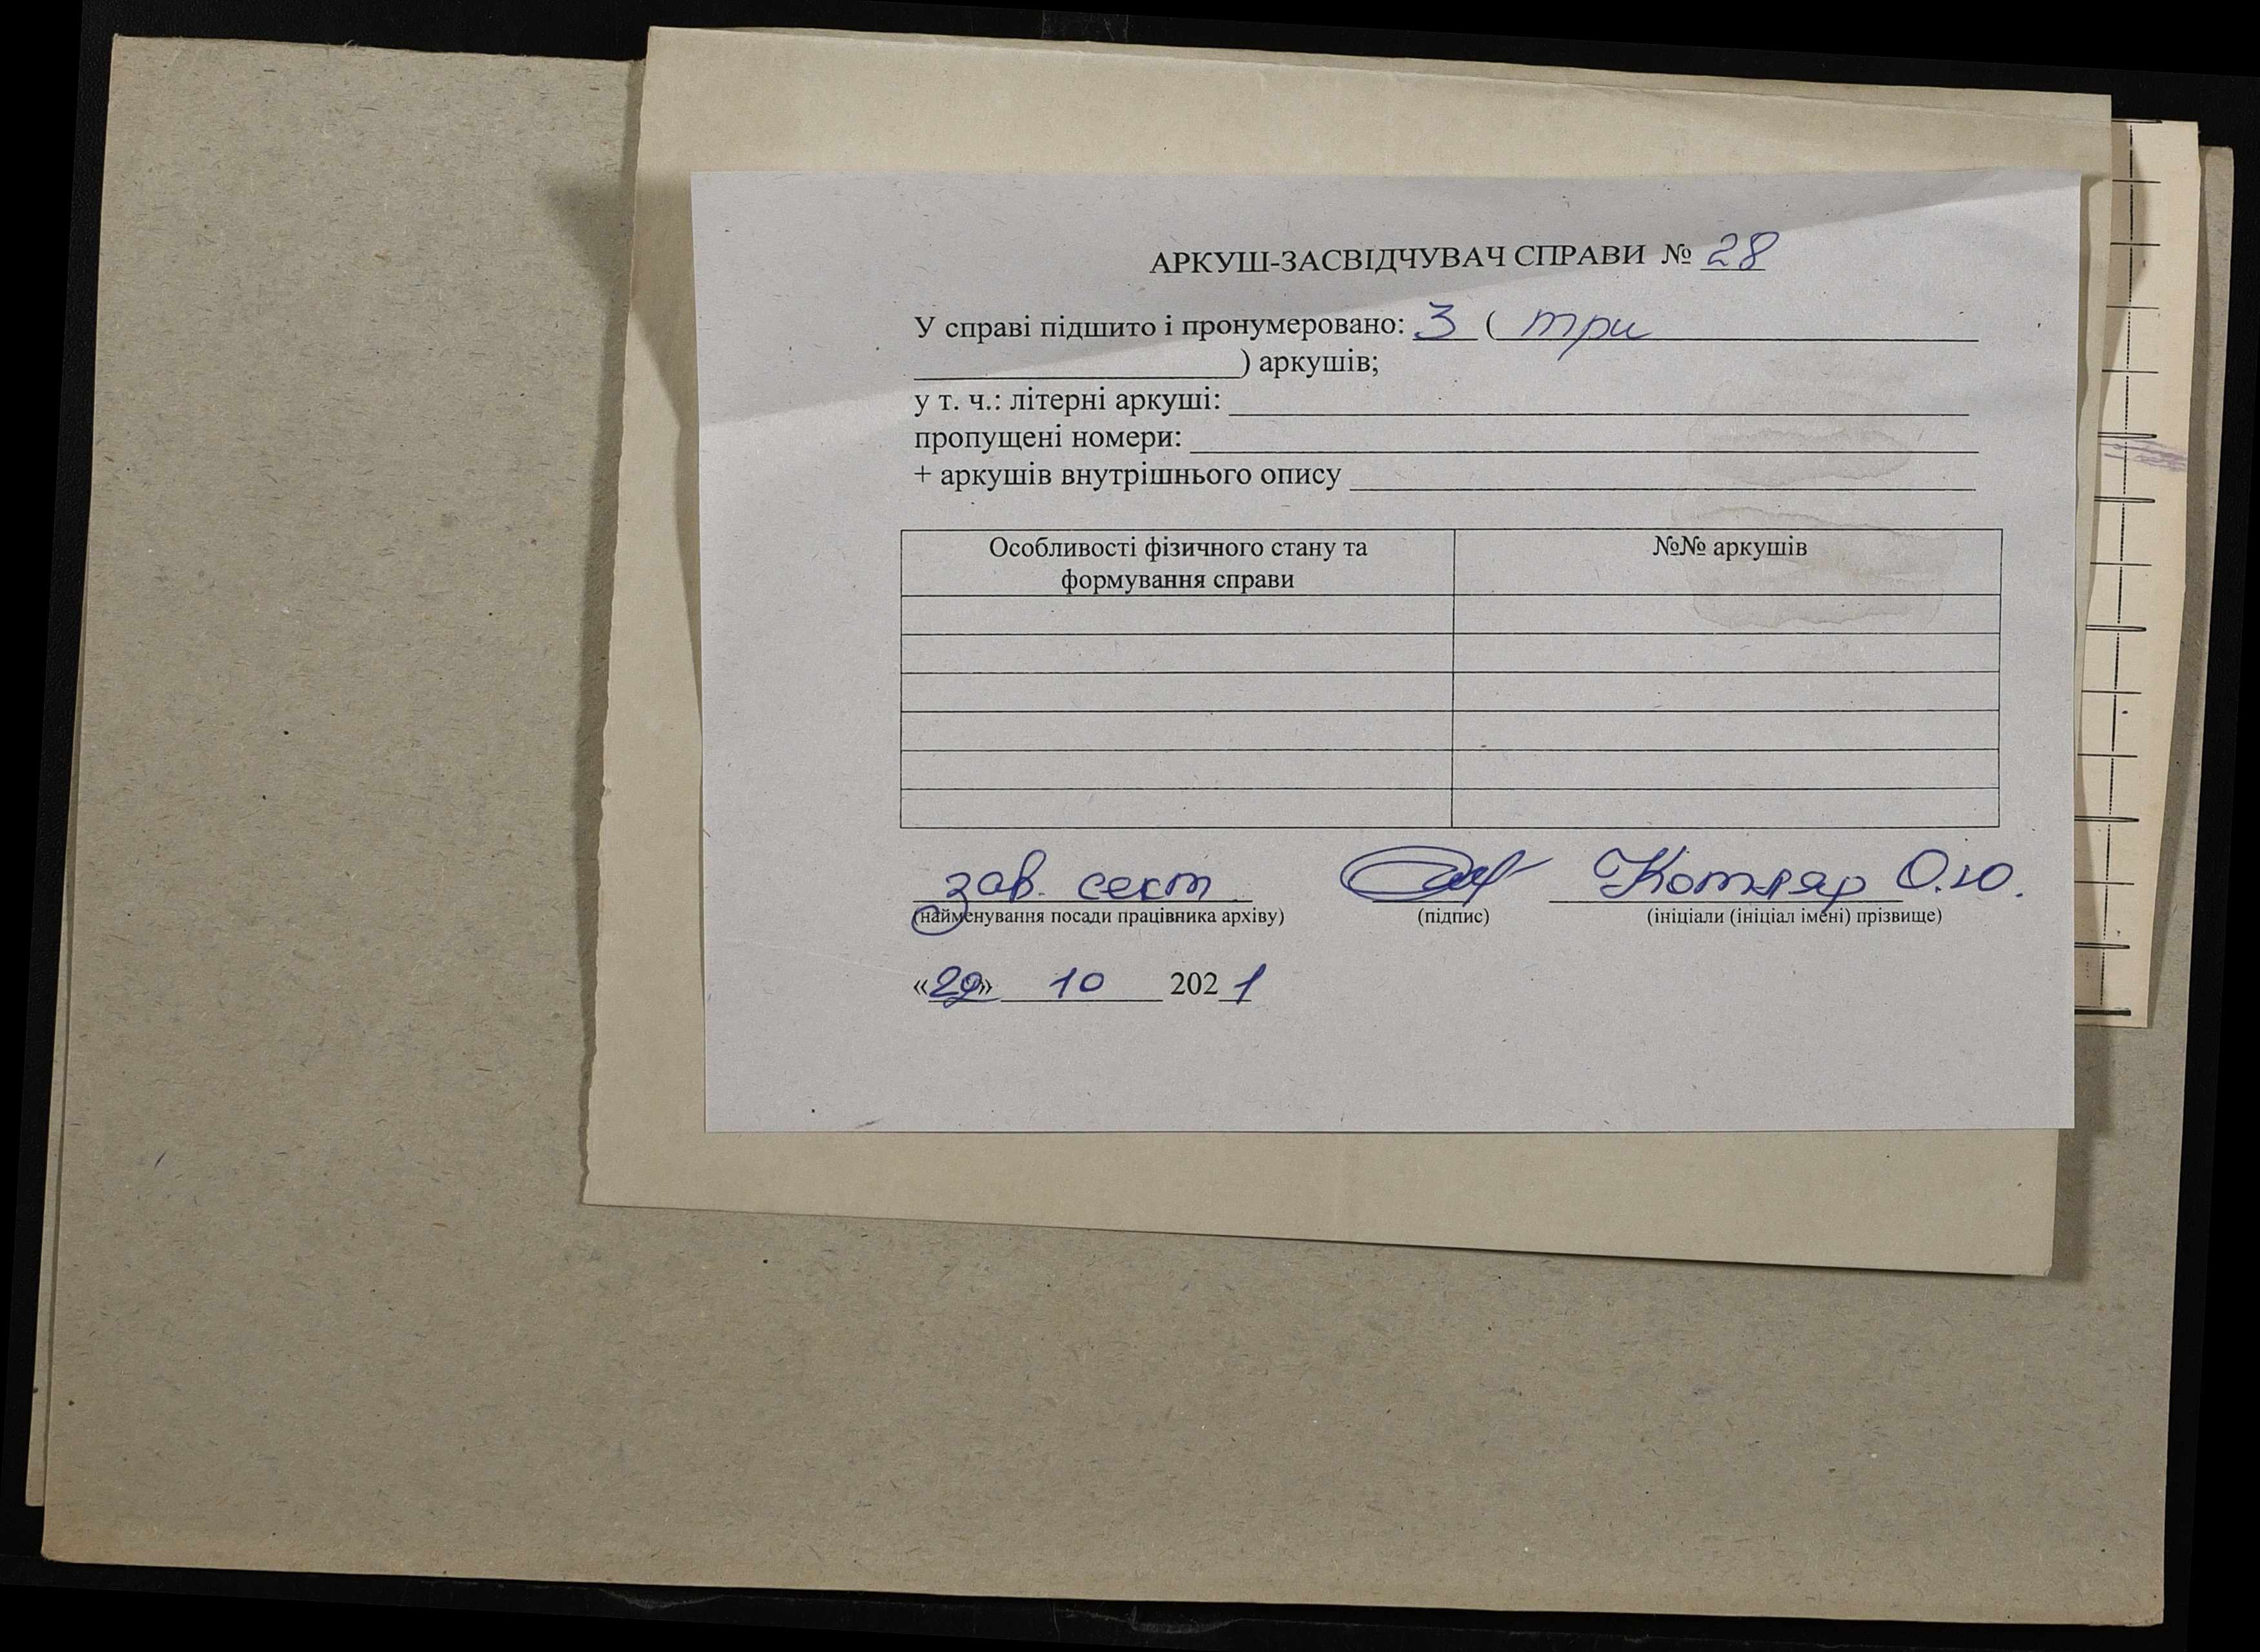 АРКУШ-ЗАСВІДЧУВАЧ СПРАВИ № 28
У справі підшито і пронумеровано: 3 ( три
) аркушів;
у т. ч.: літерні аркуші:
пропущені номери:
+ аркушів внутрішнього опису
Особливості фізичного стану та
формування справи
№№ аркушів
зав. сект Котляр О.Ю.
(найменування посади працівника архіву) (підпис) (ініціали (ініціал імені) прізвище)
«29» 10 2021